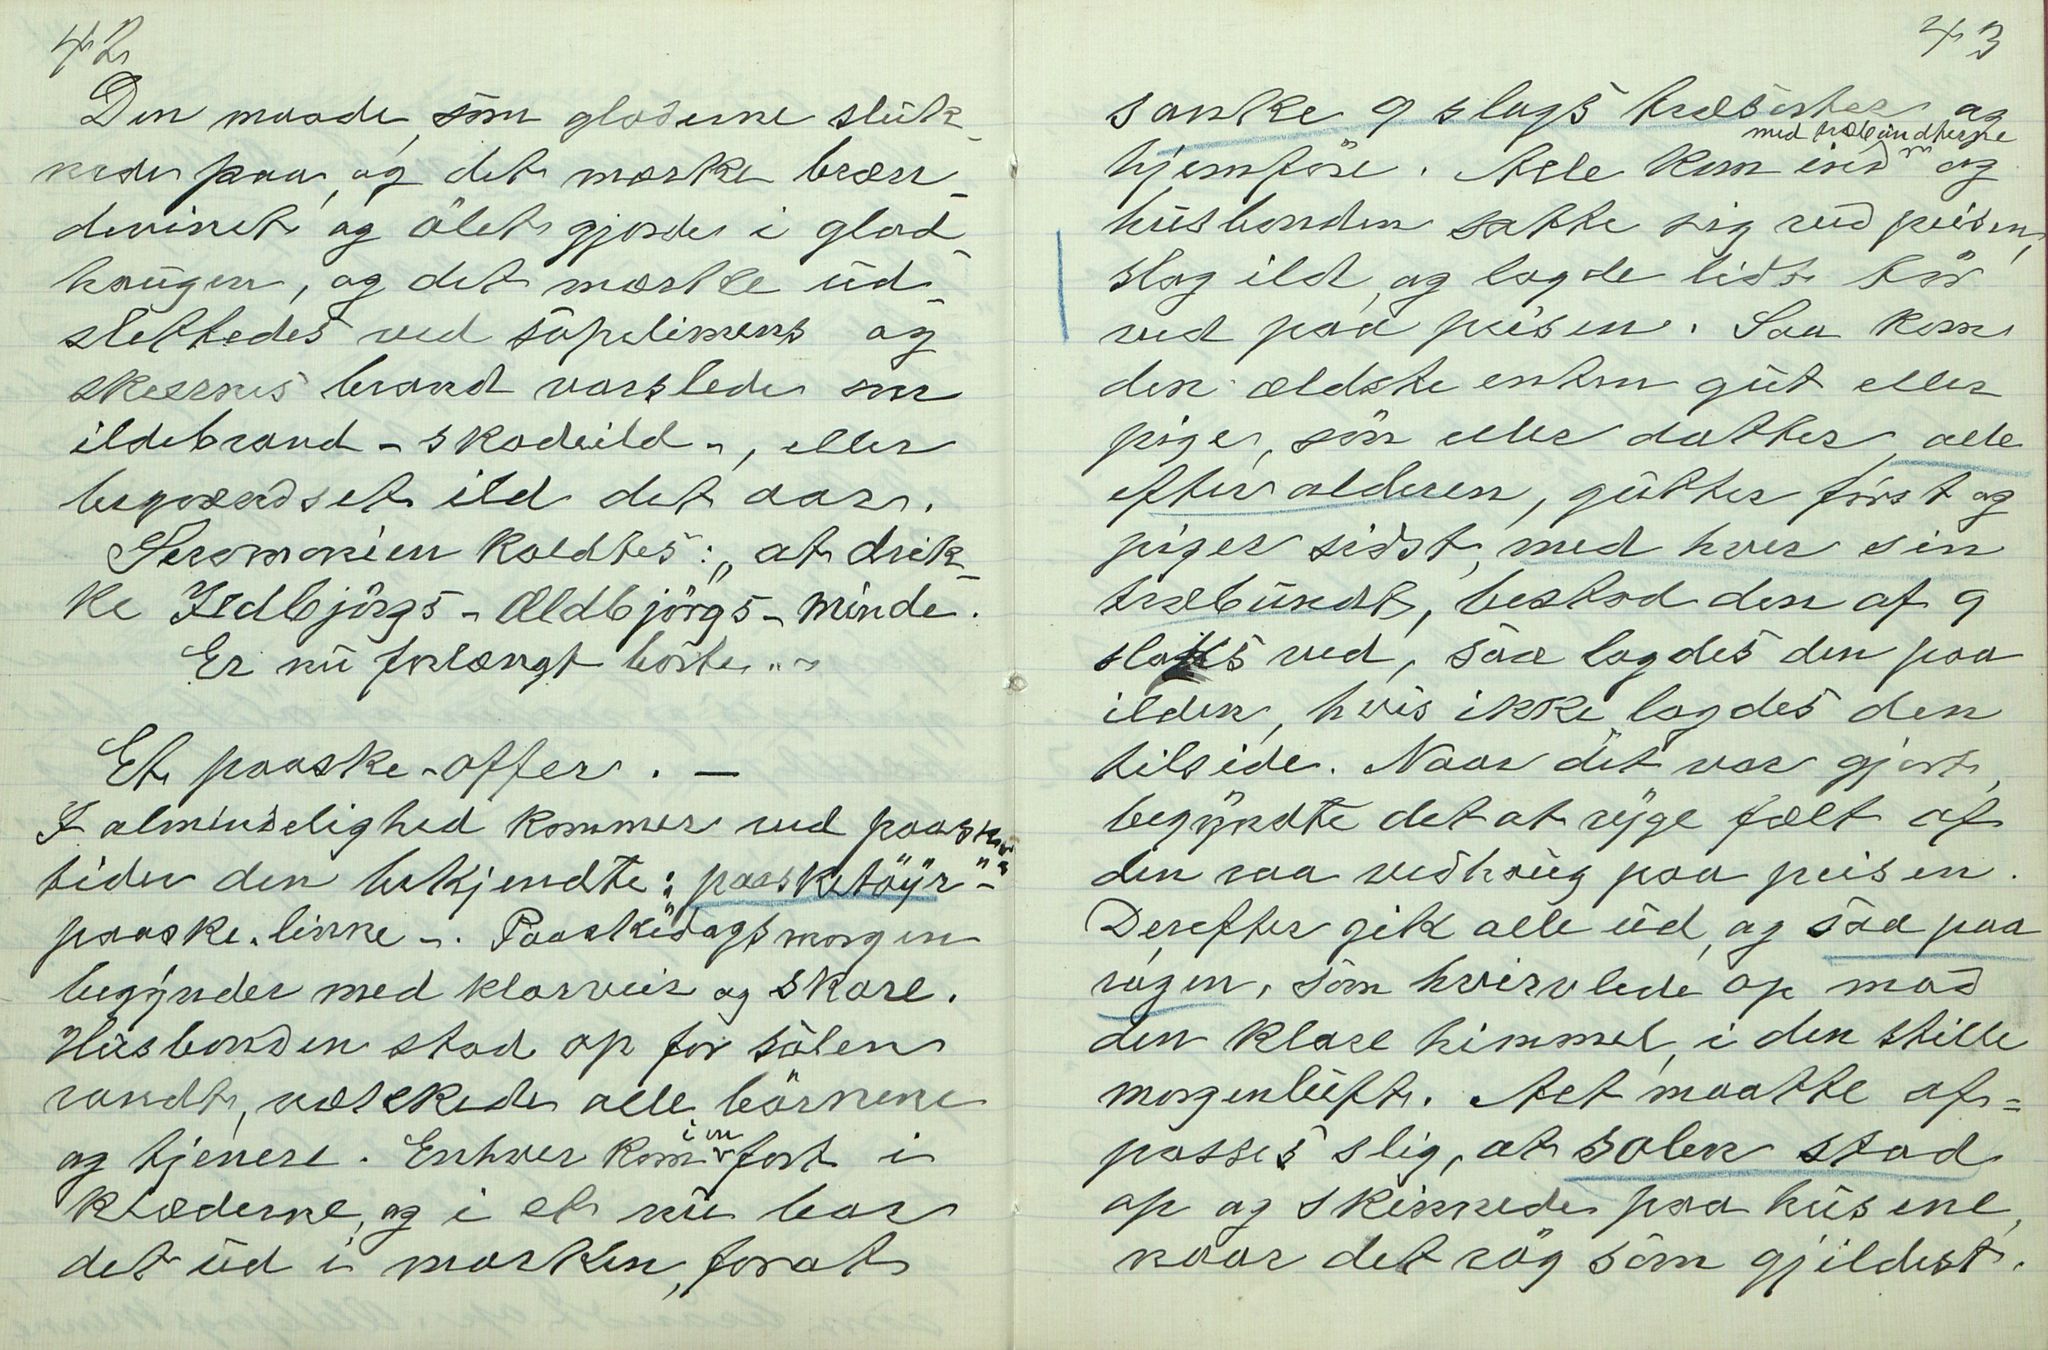 42
Den maade, som gløderne sluk-
nede paa, og det mærke bræn-
devinet og ølet gjorde i glød-
haugen, og det mærke ud-
slettedes ved sopelimens og
skjærnes brand varslede om
ildebrand - skadeild -, eller
begrændset ild det aar.
Seremonien kaldtes: „at drik-
ke Ildbjørgs - Ældbjørgs - minde.
Er nu forlængt borte. "
Et paaske-offer. —
I almindelighed kommer ved paaske-
tider den bekjendte: „paasketöyr" -
paaske-linne -. Paaskedagsmorgen
begynder med klarveir og skare.
Husbonden stod op før solen
randt, vækkede alle børnene
og tjenere. Enhver kom i en fart i
klæderne, og i et nu bar
det ud i marken, forat
43
sanke 9 slags træsorter og
hjemføre. Alle kom ind med træbundterne og
husbonden satte sig ved peisen,
slog ild, og lagde lidt tør
ved paa peisen. Saa kom
den ældste enten gut eller
pige, søn eller datter, alle
efter alderen, gutter først og
piger sidst, med hver sin
træbundt, bestod den af 9
slags ved, saa lagdes den paa
ilden, hvis ikke lagdes den
tilside. Naar det var gjort,
begyndte det at ryge fælt af
den raa vedhaug paa peisen.
Derefter gik alle ud, og saa paa
røgen, som hvirvlede op mod
den klare himmel, i den stille
morgenluft. Alt maatte af-
passes slig, at solen stod
op og skinnede paa husene,
naar det røg som gjildest.